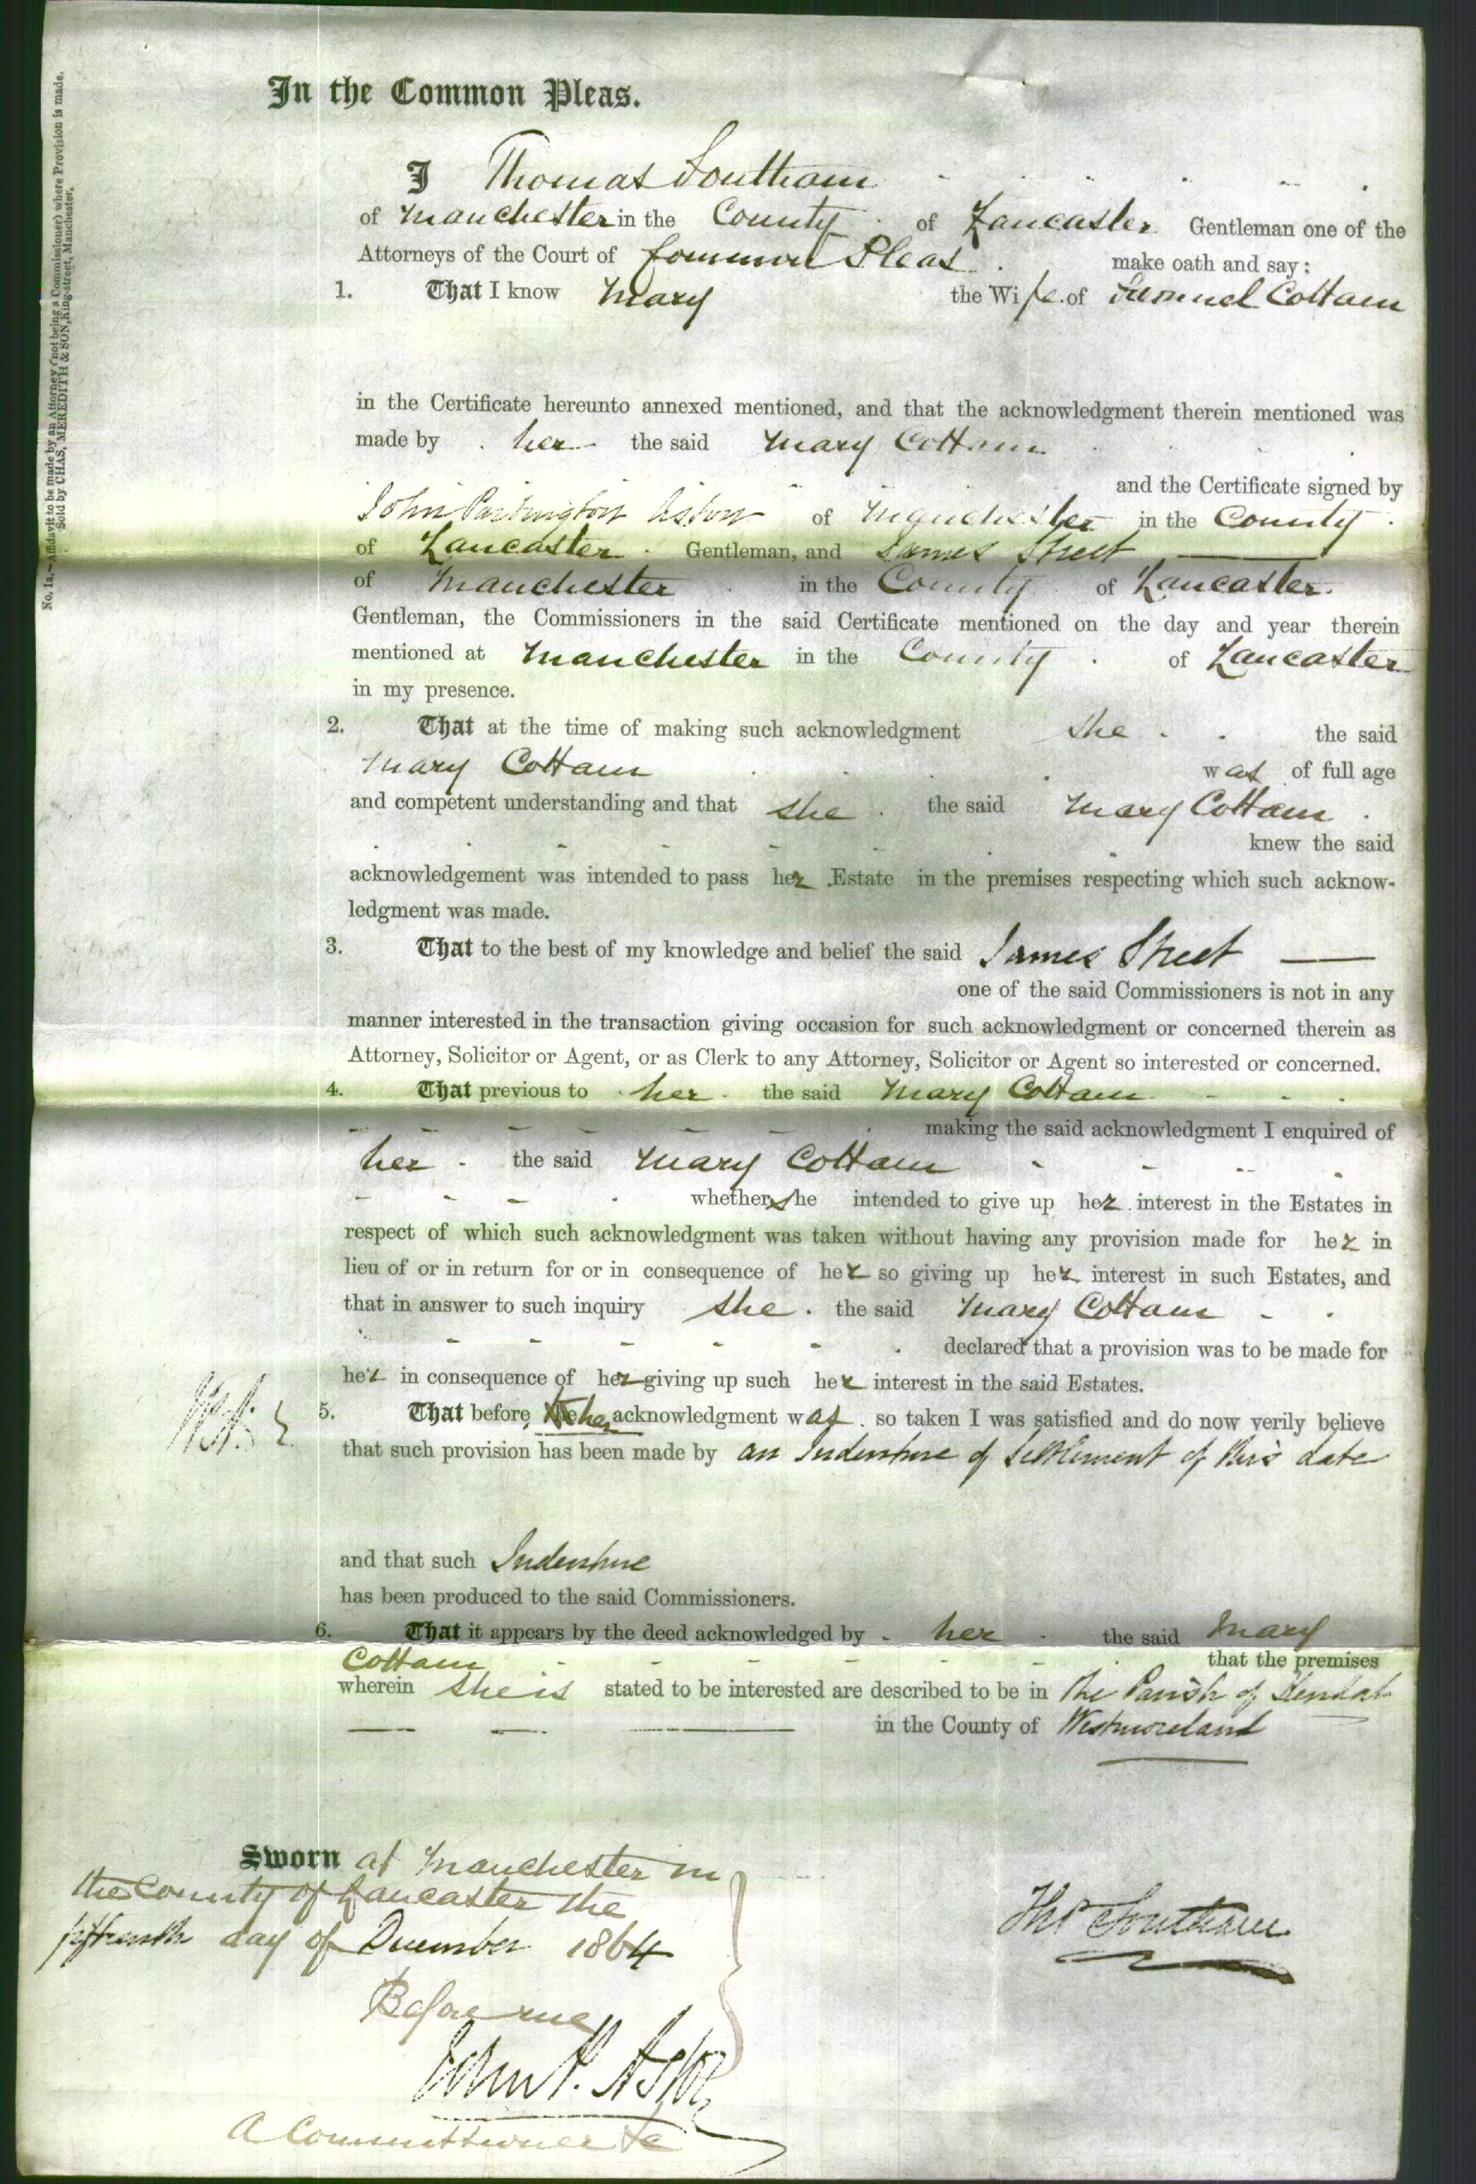 No. 1a.—Affidavit to be made by an Attorney (not being a Commissioner) where Provision is made.
Sold by CHAS. MEREDITH & SON, King-street, Manchester.
In the Common Pleas.
I Thomas Southam
of Manchester in the County of Lancaster Gentleman one of the
Attorneys of the Court of Common Pleas make oath and say:
1. That I know Mary the Wife of Samuel Cottam
in the Certificate hereunto annexed mentioned, and that the acknowledgment therein mentioned was
made by her the said Mary Cottam
and the Certificate signed by
John Partington Aston of Manchester in the County
of Lancaster Gentleman, and James Street
of Manchester in the County of Lancaster
Gentleman, the Commissioners in the said Certificate mentioned on the day and year therein
mentioned at Manchester in the County of Lancaster
in my presence.
2. That at the time of making such acknowledgment she the said
Mary Cottam was of full age
and competent understanding and that she the said Mary Cottam
knew the said
acknowledgement was intended to pass her Estate in the premises respecting which such acknow-
ledgment was made.
3. That to the best of my knowledge and belief the said James Street
one of the said Commissioners is not in any
manner interested in the transaction giving occasion for such acknowledgment or concerned therein as
Attorney, Solicitor or Agent, or as Clerk to any Attorney, Solicitor or Agent so interested or concerned.
4. That previous to her the said Mary Cottam
making the said acknowledgment I enquired of
her the said Mary Cottam
whether she intended to give up her interest in the Estates in
respect of which such acknowledgment was taken without having any provision made for her in
lieu of or in return for or in consequence of her so giving up her interest in such Estates, and
that in answer to such inquiry she the said Mary Cottam
declared that a provision was to be made for
her in consequence of her giving up such her interest in the said Estates.
5. That before her acknowledgment was so taken I was satisfied and do now verily believe
that such provision has been made by an Indenture of Settlement of this date
and that such Indenture
has been produced to the said Commissioners.
6. That it appears by the deed acknowledged by her the said Mary
Cottam that the premises
wherein she is stated to be interested are described to be in the Parish of Kendal
in the County of Westmoreland
Sworn at Manchester in
the County of Lancaster the
fifteenth day of December 1864
Before me
John P. Aston
A Commissioner &c
Thos Southam